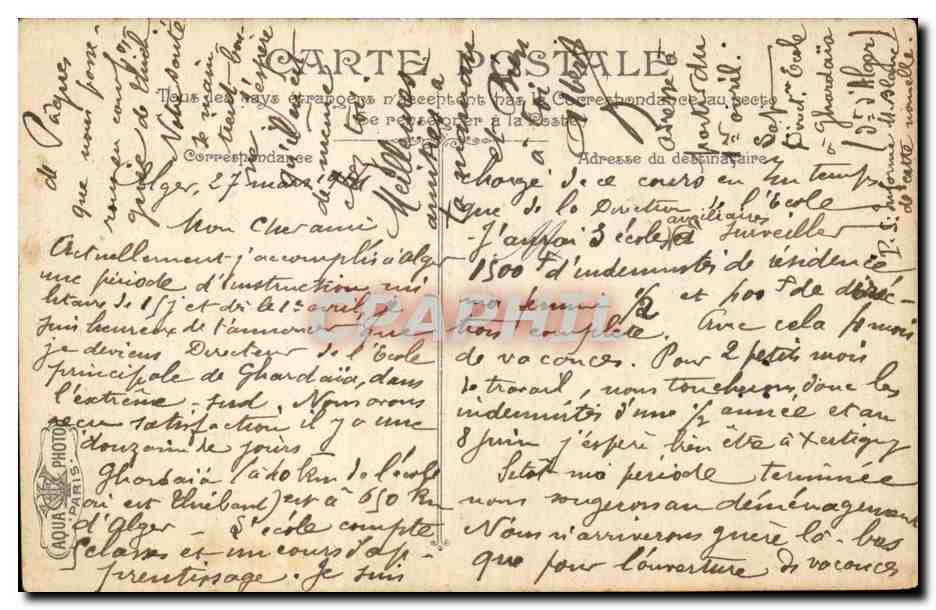 CARTE POSTALE
Tous les pays étrangers n'acceptent pas la Correspondance au recto
Se renseigner à la Poste
Correspondance
Adresse du destinataire
Alger, 27 mars
Mon Cher ami
Actuellement j'accomplis à Alger
une période d'instruction mi
litaire de 15 j et dès le 1er avril, je
suis heureux de t'annoncer que
je deviens Directeur de l'Ecole
principale de Ghardaïa, dans
l'extrême-sud. Nous avons
reçu satisfaction il y a une
douzaine de jours.
Ghardaïa (à 10 km de l'école
où est Thiébaut) est à 650 km
d'Alger. L'école compte
5 classes et un cours d'ap-
prentissage. Je suis
chargé de ce cours en m temps
que de la Direction de l'Ecole
J'aurai 3 écoles auxiliaires à surveiller
1500 f d'indemnités de résidence
ma femme 1/2 et 900 f de direc-
tion complète. Avec cela 4 mois
de vacances. Pour 2 petits mois
de travail, nous toucherons donc les
indemnités d'une 1/2 année et au
8 juin j'espère bien être à Xertigny
Sitôt ma période terminée
nous songerons au déménagement
Nous n'arriverons guère là-bas
que pour l'ouverture de vacances
de Pâques
que nous passe-
rons en compa
gnie de Thiéb
Vos santé
se main
tient bon-
ne j'espère
qu'il en est
de même
chez toi
Meilleures
amitiés à
ta maman
et
à toi
Adresse à
partir du
1er avril.
Direct. Ecole
à Ghardaïa
(dt d'Alger)
P.S. informe M. Blanc
de cette nouvelle
AQUA PHOTO
PARIS
CPAPHIL